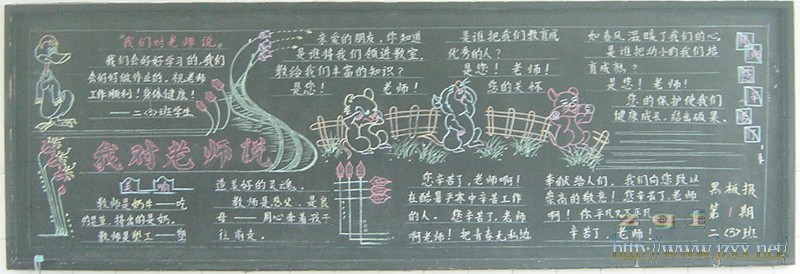 "我们对老师说"
我们会好好学习的,我们
会好好做作业的,祝老师
工作顺利!身体健康!
——二(四)班学生
亲爱的朋友,你知道
是谁将我们领进教室,
教给我们丰富的知识?
是您! 老师!
是谁把我们教育成
优秀的人?
是您! 老师!
您的关怀
如春风温暖了我们的心
是谁把幼小的我们培
育成熟?
是您! 老师!
您的保护使我们
健康成长,结出硕果。
我对老师说
教师是奶牛——吃
的是草,挤出的是奶。
教师是塑工——塑
造美好的灵魂。
教师是烛火、是良
母——用心牵着孩子
往前走。
您辛苦了,老师啊!
在酷暑严寒中辛苦工作
的人。您辛苦了,老师
啊老师!把青春无私地
奉献给人们,我们向您致以
崇高的敬意!您辛苦了,老师
啊!
辛苦了,老师!
黑板报
第1期
二(四)班
http://www.jzxx.net/